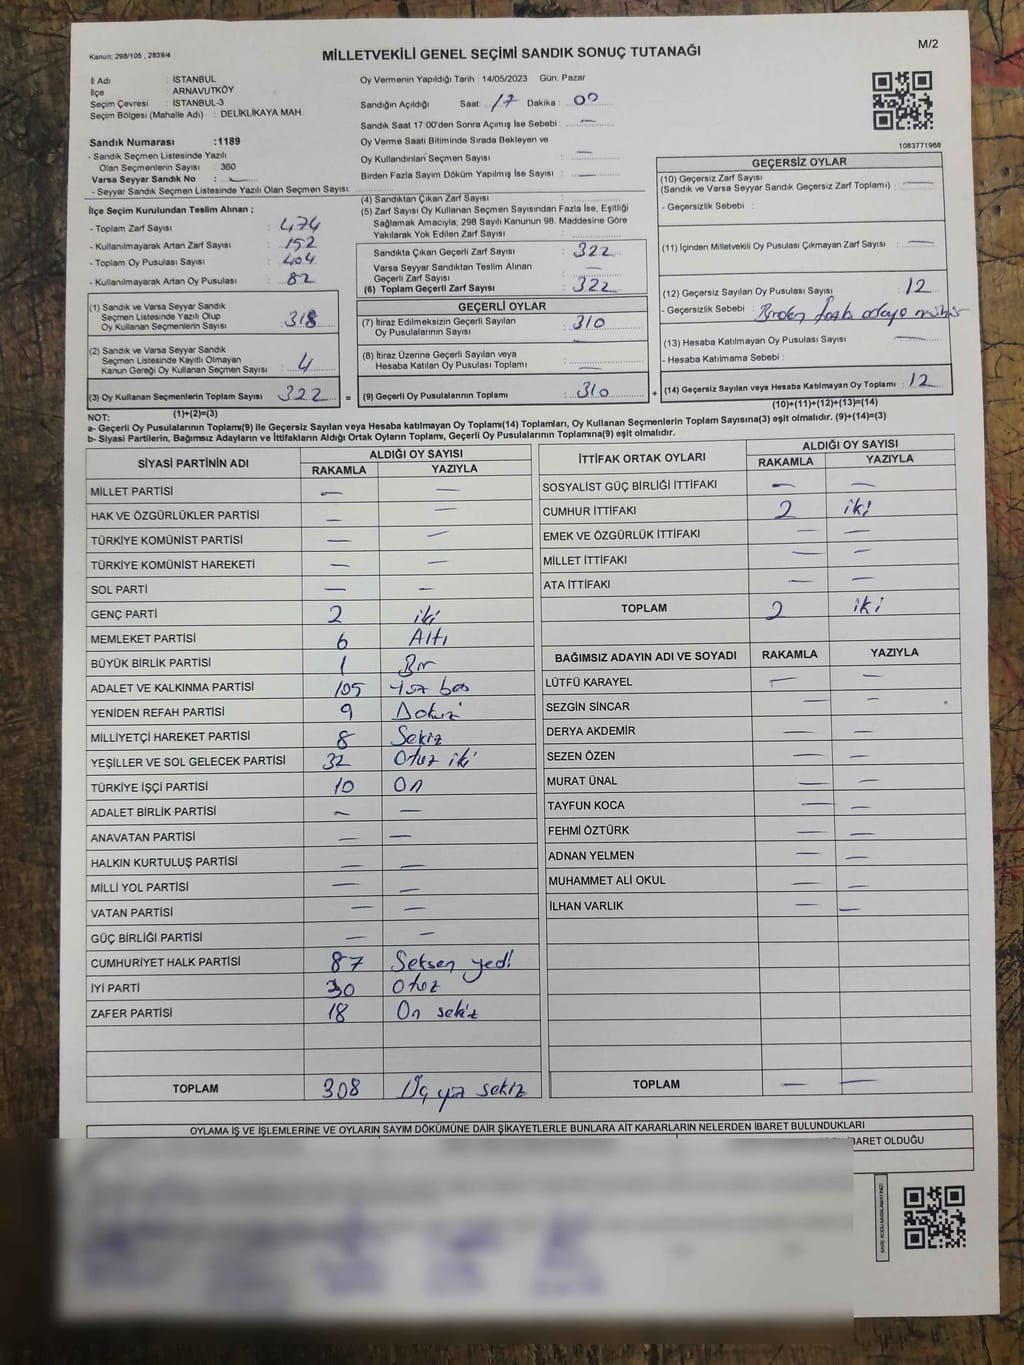 Kanun: 298/105 , 2839/4
MİLLETVEKİLİ GENEL SEÇİMİ SANDIK SONUÇ TUTANAĞI
M/2
İl Adı : İSTANBUL
İlçe : ARNAVUTKÖY
Seçim Çevresi : İSTANBUL-3
Seçim Bölgesi (Mahalle Adı) : DELİKLİKAYA MAH.
Sandık Numarası :1189
- Sandık Seçmen Listesinde Yazılı
Olan Seçmenlerin Sayısı : 360
Varsa Seyyar Sandık No : —
- Seyyar Sandık Seçmen Listesinde Yazılı Olan Seçmen Sayısı:
Oy Vermenin Yapıldığı Tarih : 14/05/2023 Gün: Pazar
Sandığın Açıldığı Saat: 17 Dakika : 00
Sandık Saat 17:00'den Sonra Açılmış İse Sebebi : —
Oy Verme Saati Bitiminde Sırada Bekleyen ve
Oy Kullandırılan Seçmen Sayısı : —
Birden Fazla Sayım Döküm Yapılmış İse Sayısı : —
1083771968
İlçe Seçim Kurulundan Teslim Alınan ;
- Toplam Zarf Sayısı : 474
- Kullanılmayarak Artan Zarf Sayısı : 152
- Toplam Oy Pusulası Sayısı : 404
- Kullanılmayarak Artan Oy Pusulası : 82
(1) Sandık ve Varsa Seyyar Sandık
Seçmen Listesinde Yazılı Olup
Oy Kullanan Seçmenlerin Sayısı : 318
(2) Sandık ve Varsa Seyyar Sandık
Seçmen Listesinde Kayıtlı Olmayan
Kanun Gereği Oy Kullanan Seçmen Sayısı : 4
(3) Oy Kullanan Seçmenlerin Toplam Sayısı 322 =
(1)+(2)=(3)
(4) Sandıktan Çıkan Zarf Sayısı :
(5) Zarf Sayısı Oy Kullanan Seçmen Sayısından Fazla İse, Eşitliği
Sağlamak Amacıyla; 298 Sayılı Kanunun 98. Maddesine Göre
Yakılarak Yok Edilen Zarf Sayısı :
Sandıkta Çıkan Geçerli Zarf Sayısı : 322
Varsa Seyyar Sandıktan Teslim Alınan
Geçerli Zarf Sayısı : —
(6) Toplam Geçerli Zarf Sayısı : 322
GEÇERLİ OYLAR
(7) İtiraz Edilmeksizin Geçerli Sayılan
Oy Pusulalarının Sayısı : 310
(8) İtiraz Üzerine Geçerli Sayılan veya
Hesaba Katılan Oy Pusulası Toplamı : —
(9) Geçerli Oy Pusulalarının Toplamı : 310 +
GEÇERSİZ OYLAR
(10) Geçersiz Zarf Sayısı : —
(Sandık ve Varsa Seyyar Sandık Geçersiz Zarf Toplamı)
- Geçersizlik Sebebi :
(11) İçinden Milletvekili Oy Pusulası Çıkmayan Zarf Sayısı : —
(12) Geçersiz Sayılan Oy Pusulası Sayısı : 12
- Geçersizlik Sebebi : Birden fazla
(13) Hesaba Katılmayan Oy Pusulası Sayısı : —
- Hesaba Katılmama Sebebi :
(14) Geçersiz Sayılan veya Hesaba Katılmayan Oy Toplamı : 12
(10)+(11)+(12)+(13)=(14)
NOT:
a- Geçerli Oy Pusulalarının Toplamı(9) ile Geçersiz Sayılan veya Hesaba katılmayan Oy Toplamı(14) Toplamları, Oy Kullanan Seçmenlerin Toplam Sayısına(3) eşit olmalıdır. (9)+(14)=(3)
b- Siyasi Partilerin, Bağımsız Adayların ve İttifakların Aldığı Ortak Oyların Toplamı, Geçerli Oy Pusulalarının Toplamına(9) eşit olmalıdır.
SİYASİ PARTİNİN ADI ALDIĞI OY SAYISI
RAKAMLA YAZIYLA
MİLLET PARTİSİ — —
HAK VE ÖZGÜRLÜKLER PARTİSİ — —
TÜRKİYE KOMÜNİST PARTİSİ — —
TÜRKİYE KOMÜNİST HAREKETİ — —
SOL PARTİ — —
GENÇ PARTİ 2 iki
MEMLEKET PARTİSİ 6 Altı
BÜYÜK BİRLİK PARTİSİ 1 Bir
ADALET VE KALKINMA PARTİSİ 105 Yüz beş
YENİDEN REFAH PARTİSİ 9 Dokuz
MİLLİYETÇİ HAREKET PARTİSİ 8 Sekiz
YEŞİLLER VE SOL GELECEK PARTİSİ 32 Otuz iki
TÜRKİYE İŞÇİ PARTİSİ 10 On
ADALET BİRLİK PARTİSİ — —
ANAVATAN PARTİSİ — —
HALKIN KURTULUŞ PARTİSİ — —
MİLLİ YOL PARTİSİ — —
VATAN PARTİSİ — —
GÜÇ BİRLİĞİ PARTİSİ — —
CUMHURİYET HALK PARTİSİ 87 Seksen yedi
İYİ PARTİ 30 Otuz
ZAFER PARTİSİ 18 On sekiz
TOPLAM 308 Üç yüz sekiz
İTTİFAK ORTAK OYLARI ALDIĞI OY SAYISI
RAKAMLA YAZIYLA
SOSYALİST GÜÇ BİRLİĞİ İTTİFAKI — —
CUMHUR İTTİFAKI 2 iki
EMEK VE ÖZGÜRLÜK İTTİFAKI — —
MİLLET İTTİFAKI — —
ATA İTTİFAKI — —
TOPLAM 2 iki
BAĞIMSIZ ADAYIN ADI VE SOYADI RAKAMLA YAZIYLA
LÜTFÜ KARAYEL — —
SEZGİN SİNCAR — —
DERYA AKDEMİR — —
SEZEN ÖZEN — —
MURAT ÜNAL — —
TAYFUN KOCA — —
FEHMİ ÖZTÜRK — —
ADNAN YELMEN — —
MUHAMMET ALİ OKUL — —
İLHAN VARLIK — —
TOPLAM — —
OYLAMA İŞ VE İŞLEMLERİNE VE OYLARIN SAYIM DÖKÜMÜNE DAİR ŞİKAYETLERLE BUNLARA AİT KARARLARIN NELERDEN İBARET BULUNDUKLARI
İBARET OLDUĞU